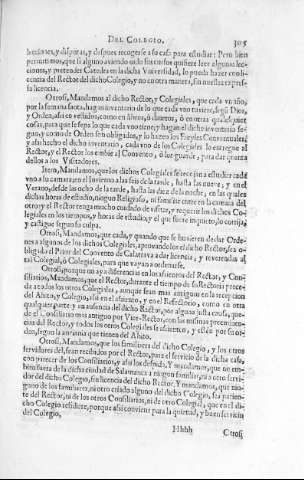 DEL COLEGIO. 305
liciones, y disputas, y despues recogerse a su casa para estudiar: Pero bien
permitimos, que si alguno aviendo oido sus cursos quisiere leer algunas lec-
ciones, y pretender Catedra en la dicha Vniversidad, lo pueda hazer con li-
cencia del Rector del dicho Colegio, y no en otra manera, sin nuestra expres-
sa licencia.
Otrosi, Mandamos al dicho Rector, y Colegiales, que cada vn año,
por la semana santa, hagan inventario de lo que cada vno tuviere, segun Dios,
y Orden, assi en vestidos, como en libros, ò dineros, ò en otras qualesquier
cosas, para que se sepa lo que cada vno tiene; y hagan el dicho inventario se-
gun, y como de Orden son obligados, y lo hazen los Freyles Conventuales;
y assi hecho el dicho inventario, cada vno de los Colegiales lo entregue al
Rector, y el Rector los embie al Convento, ò los guarde, para dar cuenta
dellos a los Visitadores.
Item, Mandamos, que los dichos Colegiales se recojan a estudiar cada
vno a su camara en el Invierno a las seis de la tarde, hasta las nueve, y en el
Verano, desde las ocho de la tarde, hasta las diez de la noche, en las quales
dichas horas de estudio, ningun Religioso, ni familiar entre en la camara del
otro; y el Rector tenga mucho cuidado de visitar, y requerir los dichos Co-
legiales en los tiempos, y horas de estudio, y el que fuere inquieto, lo corrija,
y castigue segun su culpa.
Otrosi, Mandamos, que cada, y quando que se huvieren de dar Orde-
nes a algunos de los dichos Colegiales, aprovandolos el dicho Rector, sea o-
bligado el Prior del Convento de Calatrava a dar licencia, y reverendas al
tal Colegial, ò Colegiales, para que vayan a ordenarse.
Otrosi, porque no aya diferencias en los assientos del Rector, y Con-
siliarios, Mandamos, que el Rector, durante el tiempo de su Rectoria prece-
da a todos los otros Colegiales, aunque sean mas antiguos en la recepcion
del Abito, y Colegio, assi en el assiento, y en el Refectorio, como en otra
qualquier parte, y en ausencia del dicho Rector, por alguna justa causa, que
el Consiliario mas antiguo por Vice-Rector, con las mismas preeminen-
cias del Rector, y todos los otros Colegiales se assienten, y estèn por su or-
den, segun la antiguedad que tienen del Abito.
Otrosi, Mandamos, que los familiares del dicho Colegio, y los otros
servidores del, sean recibidos por el Rector, para el servicio de la dicha casa,
con parecer de los Consiliarios, y assi los despida, Y mandamos, que no em-
bien fuera de la dicha ciudad de Salamanca a ningun familiar, ni a otro servi-
dor del dicho Colegio, sin licencia del dicho Rector. Y mandamos, que nin-
guno de los familiares, ni otro criado alguno del dicho Colegio, sea parien-
te del Rector, ni de los otros Consiliarios, ni de otro Colegial, que en el di-
cho Colegio residiere, porque assi conviene para la quietud, y buen servicio
del Colegio.
Hhhh Otrosi,